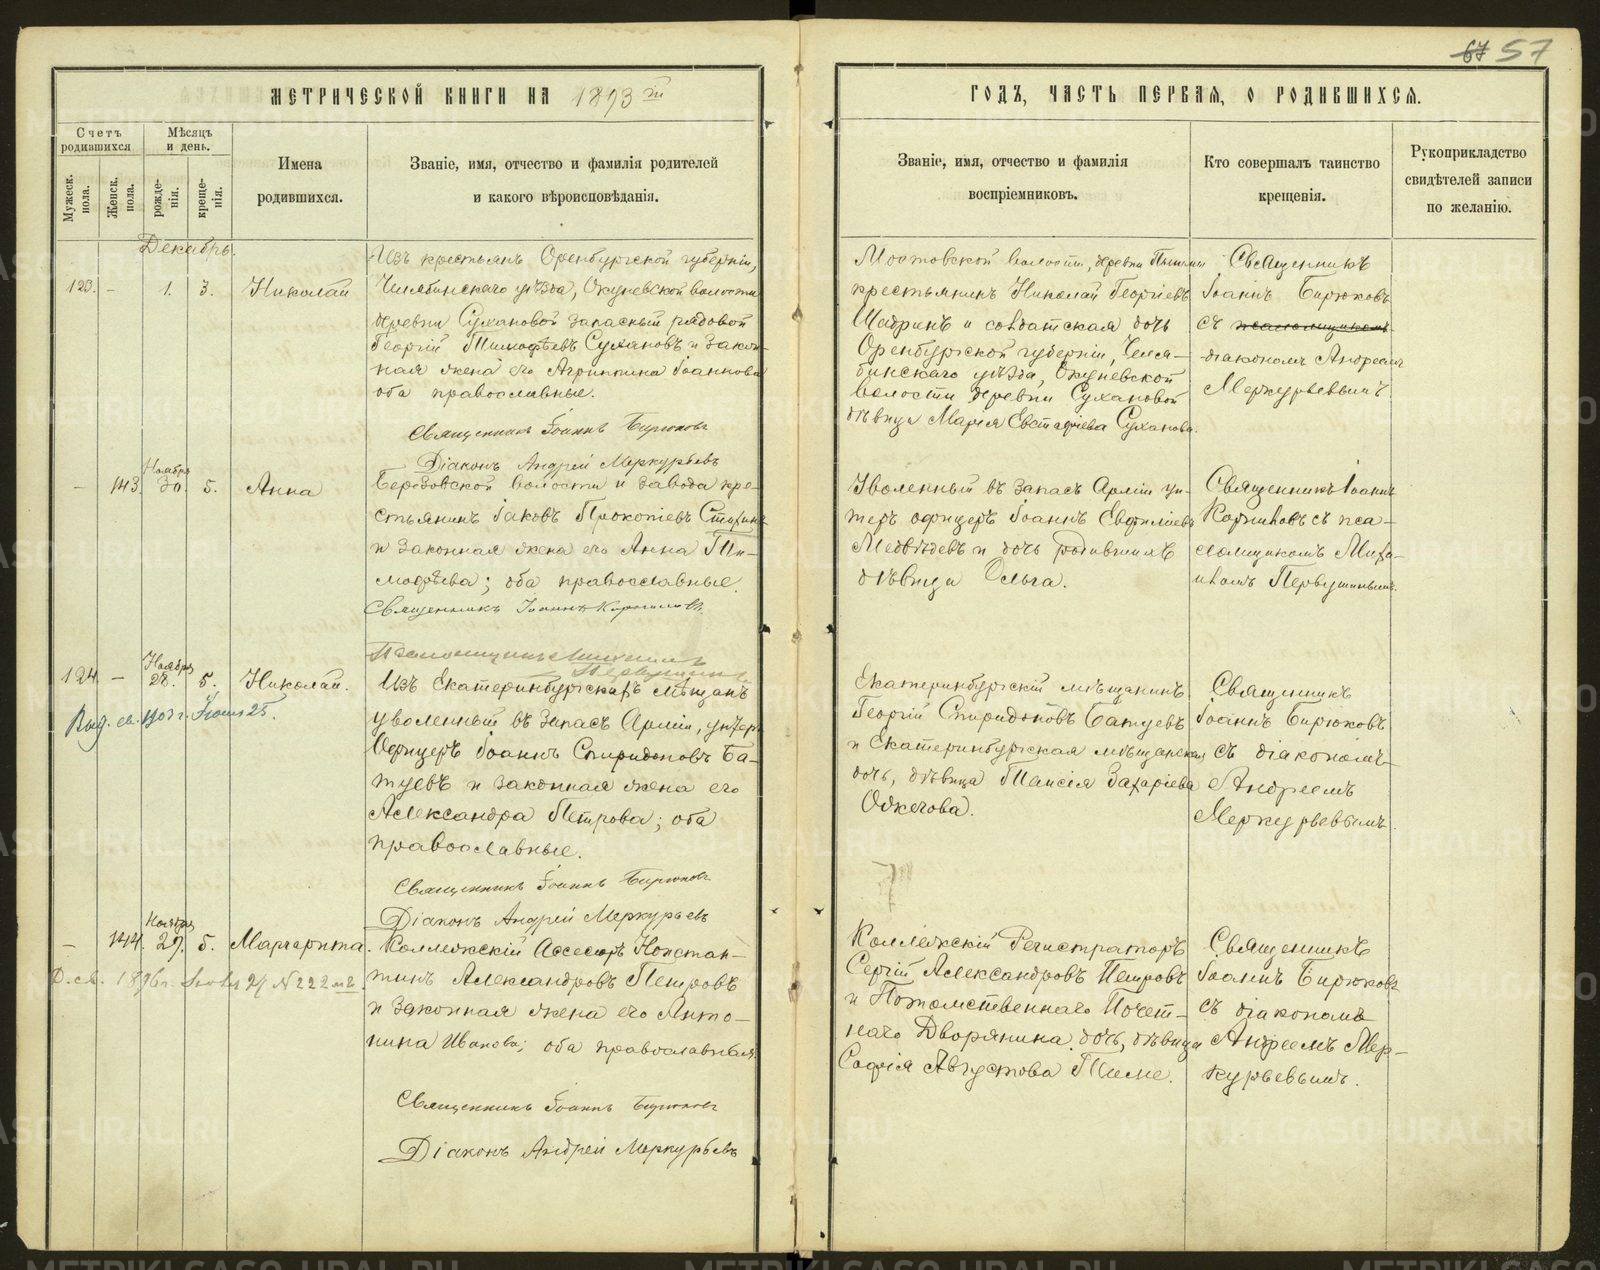 67 57
МЕТРИЧЕСКОЙ КНИГИ НА 1893 й
Счетъ родившихся
Мѣсяцъ и день.
Мужеск. пола.
Женск. пола.
рожде-нія.
креще-нія.
Имена
родившихся.
Званіе, имя, отчество и фамилія родителей
и какого вѣроисповѣданія.
Декабрь.
123. – 1. 3. Николай
Изъ крестьянъ Оренбургской губерніи,
Челябинскаго уѣзда, Окуневской волости
деревни Сухановой запасный рядовой
Георгій Тимофѣевъ Сухановъ и закон-
ная жена его Агриппина Іоаннова
оба православные.
Священникъ Іоаннъ Бирюковъ
Діаконъ Андрей Меркурьевъ
– 143. Ноября 30. 5. Анна
Березовской волости и завода кре-
стьянинъ Іаковъ Прокопіевъ
и законная жена его Анна Ти-
мофѣева; оба православные.
Священникъ Іоаннъ Корниловъ.
Псаломщикъ Михаилъ
Первушинъ
124. – Ноября 28. 5. Николай.
Выд. св. 1903 г. Іюня 25.
Изъ Екатеринбургскихъ мѣщанъ
уволенный въ запасъ Арміи, унтеръ
Офицеръ Іоаннъ Спиридоновъ Ба-
туевъ и законная жена его
Александра Петрова; оба
православные.
Священникъ Іоаннъ Бирюковъ
Діаконъ Андрей Меркурьевъ
– 144. Ноября 29. 5. Маргарита.
Д. св. 1896 г. 21 № 222 мъ
Коллежскій Ассесоръ Констан-
тинъ Александровъ Петровъ
и законная жена его Анто-
нина Иванова; оба православные.
Священникъ Іоаннъ Бирюковъ
Діаконъ Андрей Меркурьевъ
ГОДЪ, ЧАСТЬ ПЕРВАЯ, О РОДИВШИХСЯ.
Званіе, имя, отчество и фамилія
воспріемниковъ.
Кто совершалъ таинство
крещенія.
Рукоприкладство
свидѣтелей записи
по желанію.
Мостовской волости, деревни
крестьянинъ Николай Георгіевъ
Шадринъ и солдатская дочь
Оренбургской губерніи, Челя-
бинскаго уѣзда, Окуневской
волости деревни Сухановой
дѣвица Марія Евстафіева Суханова.
Священникъ
Іоаннъ Бирюковъ
съ псаломщикомъ
діакономъ Андреемъ
Меркурьевымъ.
Уволенный въ запасъ Арміи ун-
теръ офицеръ Іоаннъ Евфиміевъ
Медвѣдевъ и дочь родившихъ
дѣвица Ольга.
Священникъ Іоаннъ
Корниловъ съ пса-
ломщикомъ Миха-
иломъ Первушинымъ.
Екатеринбургскій мѣщанинъ
Георгій Спиридоновъ Батуевъ
и Екатеринбургская мѣщанская
дочь, дѣвица Таисія Захаріева
Ожегова.
Священникъ
Іоаннъ Бирюковъ
съ діакономъ
Андреемъ
Меркурьевымъ.
Коллежскій Регистраторъ
Сергій Александровъ Петровъ
и Потомственнаго Почет-
наго Дворянина дочь, дѣвица
Софія Августова Тиме.
Священникъ
Іоаннъ Бирюковъ
съ діакономъ
Андреемъ Мер-
курьевымъ.
METRIKI.GASO-URAL.RU